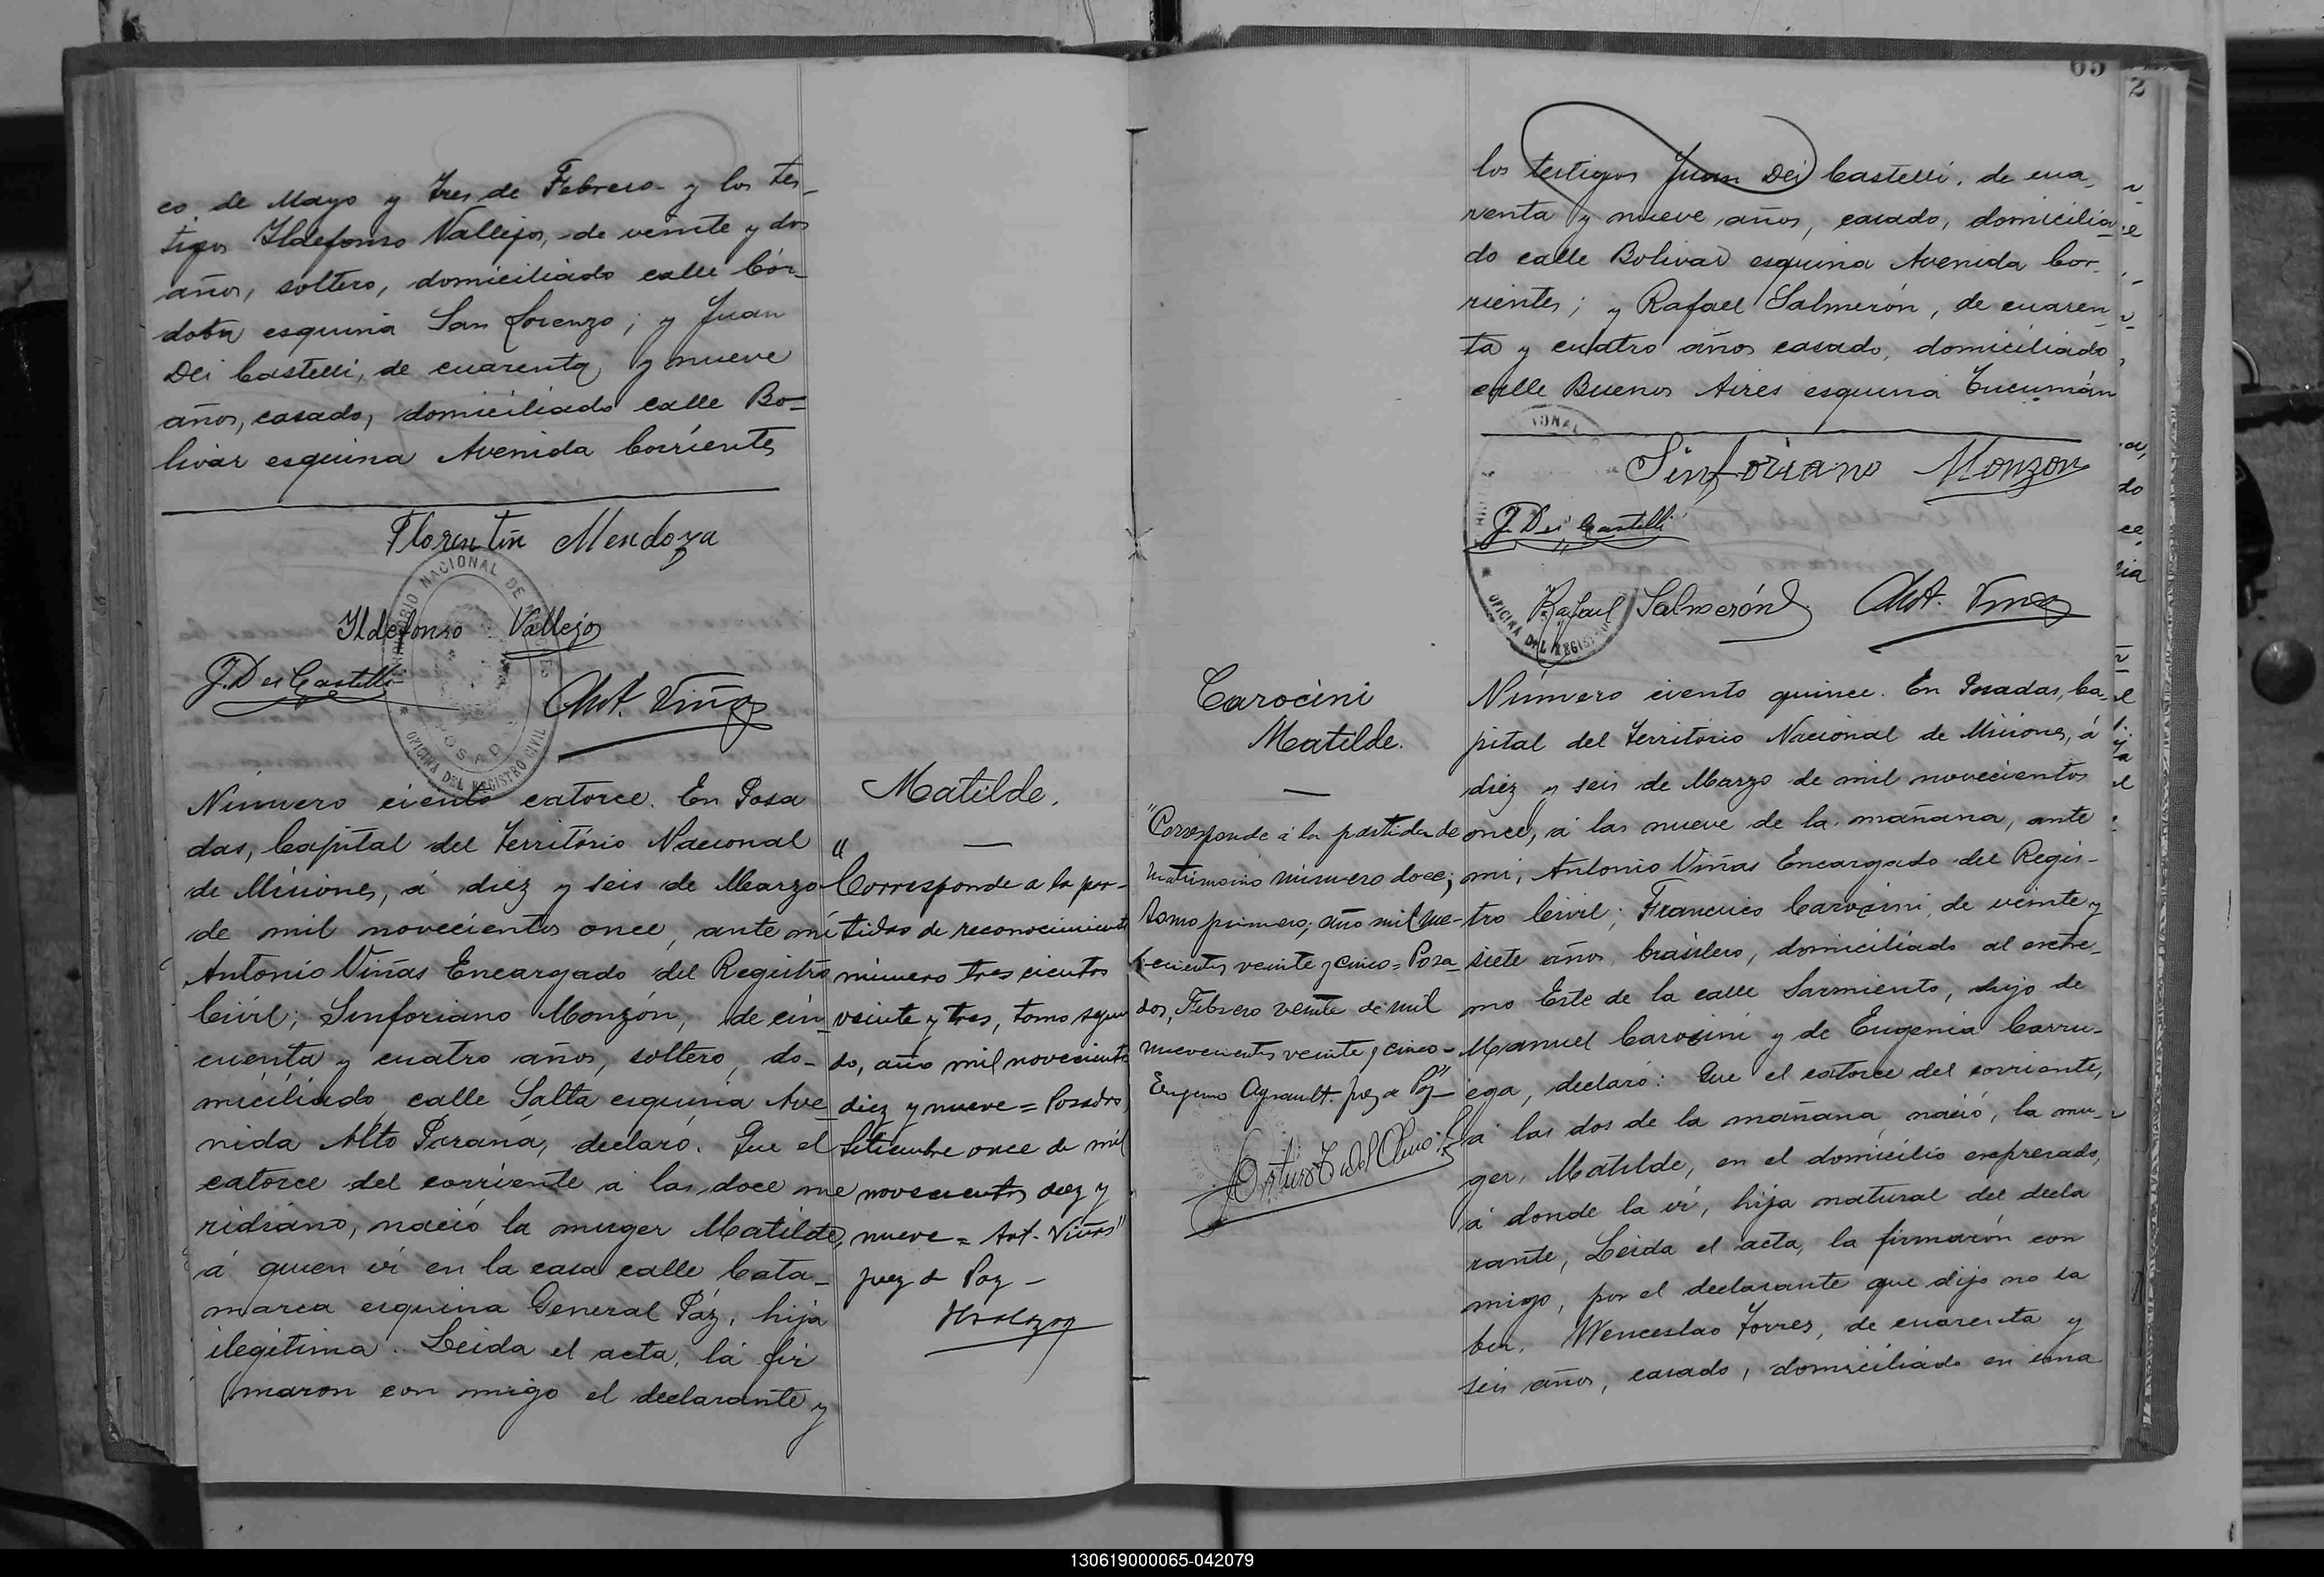 co de Mayo y Tres de Febrero y los tes-
tigos Ildefonso Vallejos, de veinte y dos
años, soltero, domiciliado calle Cór-
doba esquina San Lorenzo; y Juan
Dei Castelli, de cuarenta y nueve
años, casado, domiciliado calle Bo-
livar esquina Avenida Corrientes
Florentin Mendoza
Ildefonso Vallejos
J. Dei Castelli
Ant. Viñas
NACIONAL DE
OFICINA DEL REGISTRO CIVIL
Número ciento catorce. En Posa
das, Capital del Territorio Nacional
de Misiones, á diez y seis de Marzo
de mil novecientos once, ante mí
Antonio Viñas Encargado del Registro
Civil; Sinforiano Monzón, de cin-
cuenta y cuatro años, soltero, do-
miciliado calle Salta esquina Ave
nida Alto Paraná, declaró. Que el
catorce del corriente á las doce me
ridiano, nació la muger Matilde,
á quien ví en la casa calle Cata-
marca esquina General Paz, hija
ilegítima. Leida el acta, la fir
maron con migo el declarante y
Matilde.
"Corresponde a la par-
tida de reconocimiento
número tres cientos
veinte y tres, tomo segun
do, año mil novecientos
diez y nueve = Posadas,
Setiembre once de mil
novecientos diez y
nueve = Ant. Viñas"
Juez de Paz -
65
2
los testigos Juan Dei Castelli, de cua-
renta y nueve años, casado, domicilia-
do calle Bolivar esquina Avenida Cor-
rientes; y Rafael Salmerón, de cuaren-
ta y cuatro años casado, domiciliado
calle Buenos Aires esquina Tucumán
Sinforiano Monzon
J. Dei Castelli
Rafael Salmerón
Ant. Viñas
OFICINA DEL REGISTRO
Carocini
Matilde.
"Corresponde á la partida de
matrimonio número doce;
tomo primero; año mil nue-
vecientos veinte y cinco = Posa-
das, Febrero veinte de mil
nuevecientos veinte y cinco -
Eugenio Ayrault. Juez de Paz"
Número ciento quince. En Posadas, Ca-
pital del Territorio Nacional de Misiones, á
diez y seis de Marzo de mil novecientos
once, á las nueve de la mañana, ante
mi, Antonio Viñas Encargado del Regis-
tro Civil; Francisco Carocini, de veinte y
siete años, brasilero, domiciliado al extre-
mo Este de la calle Sarmiento, hijo de
Manuel Carocini y de Eugenia Carru-
ega, declaró: Que el catorce del corriente,
á las dos de la mañana nació, la mu-
ger, Matilde, en el domicilio expresado,
á donde la ví, hija natural del decla
rante, Leida el acta, la firmarón con
migo, por el declarante que dijo no sa
ber, Wenceslao Torres, de cuarenta y
seis años, casado, domiciliado en esta
130619000065-042079